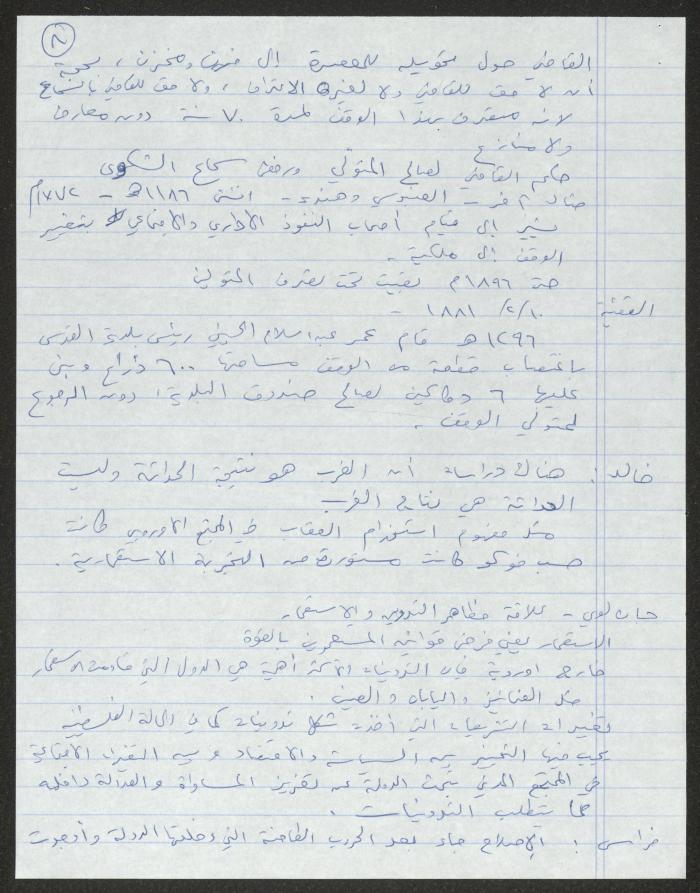 ٢
القاضي حول تحويله للمعصرة إلى فرن ومخزن، بحجة
أن لا حق للقاضي ولا لغيره الاعتراض، ولا حق للقاضي بالسماع
لأنه متصرف بهذا الوقف لمدة ٧٠ سنة دون معارض
ولا منازع
حكم القاضي لصالح المتولي ورفض سماع الشكوى
مثال آخر - ١١٨٦هـ - ١٧٧٢م
يشير إلى قيام أصحاب النفوذ الإداري والاجتماعي بتغيير
الوقف إلى ملكية.
حتى ١٨٩٦م بقيت تحت تصرف المتولين
القضية ١٠/٢/١٨٨١ -
١٢٩٦هـ قام عمر عبد السلام الحسيني رئيس بلدية القدس
باغتصاب قطعة من الوقف مساحتها ٦٠٠ ذراع وبنى
عليها ٦ دكاكين لصالح صندوق البلدية، دون الرجوع
لمتولي الوقف.
خالد: هناك دراسات أن الغرب هو نتيجة الحداثة وليست
الحداثة هي نتاج الغرب
مثل مفهوم استخدام العقاب في المجتمع الأوروبي كانت
حسب فوكو كانت مستوردة من التجربة الاستعمارية.
علاقة مظاهر التدوين والاستعمار
الاستعمار يعني فرض قوانين المستعمرين بالقوة
خارج أوروبا فإن التدوينات الأكثر أهمية هي الدول التي قاومت الاستعمار
مثل واليابان والصين.
تغييرات التشريعات التي أخذت شكل تدوينات كما في الحالة الفلسطينية
يجب فيها التمييز بين السياسة والاقتصاد وبين التغيرات الاجتماعية
في المجتمع المدني تبحث الدولة عن تعزيز المساواة والعدالة داخله
مما يتطلب التدوينات.
: الإصلاح جاء بعد الحرب الطاحنة التي دخلتها الدولة وأوجبت